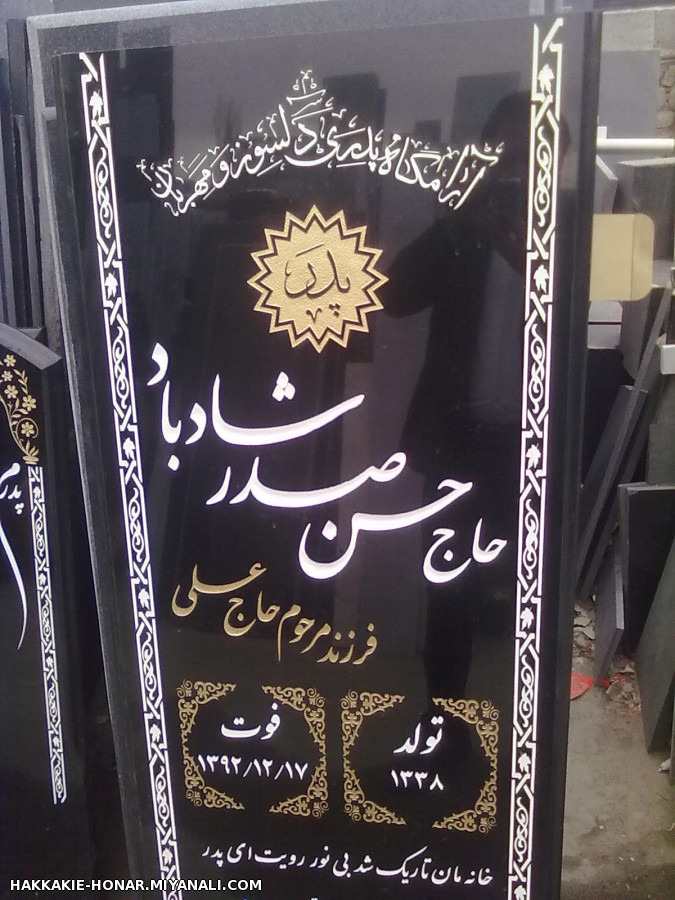 آرامگاه پدری دلسوز و مهربان
پدر
حاج حسن صدر شادباد
فرزند مرحوم حاج علی
تولد
۱۳۳۸
فوت
۱۳۹۲/۱۲/۱۷
خانه مان تاریک شد بی نور رویت ای پدر
پدر
HAKKAKIE-HONAR.MIYANALI.COM